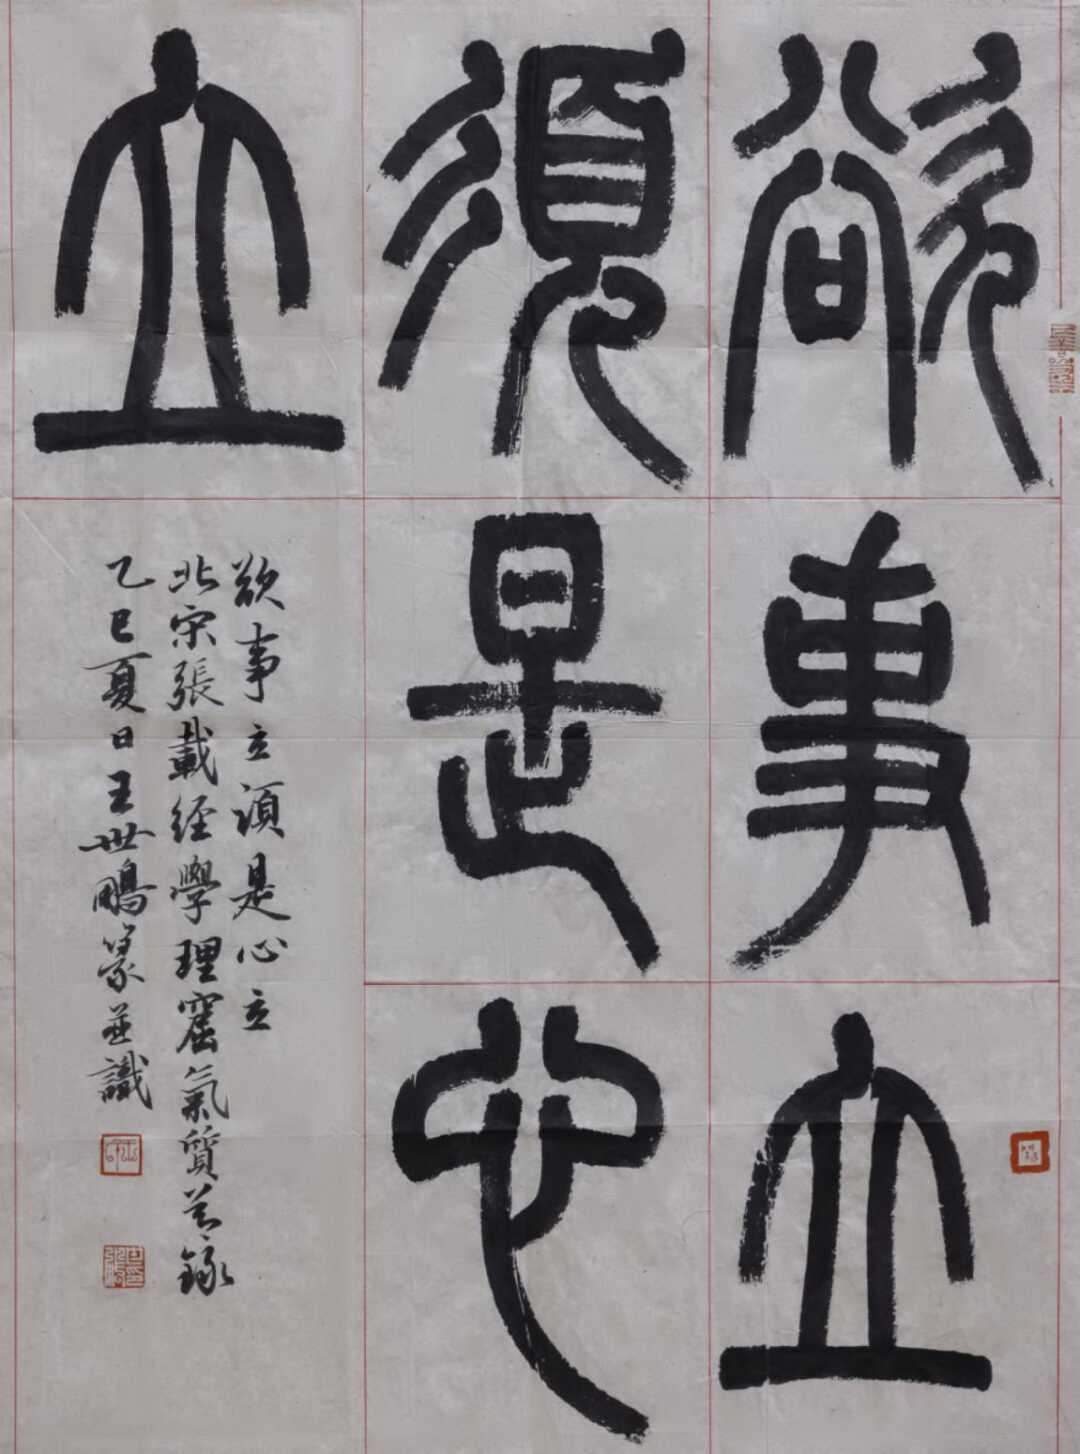 欲事立
須是心
立
欲事立須是心立
北宋張載經學理窟氣質篇錄
乙巳夏日王世鵬篆並識